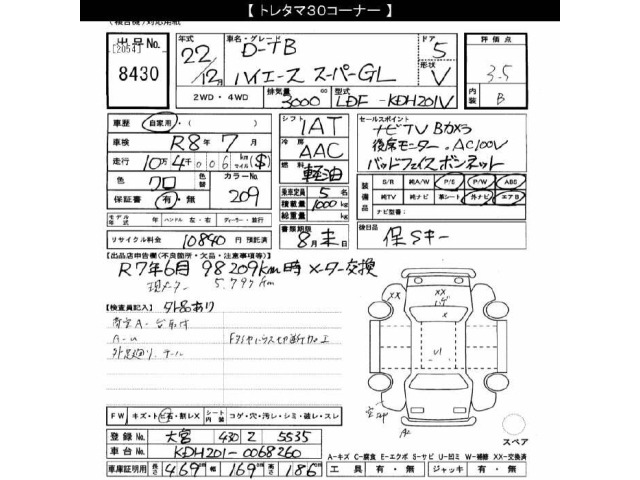 【 トレタマ30コーナー 】
(複合機)対応用紙
出品No. [2054] 8430
年式 22/12月
車名・グレード D-TB ハイエース スーパーGL
ドア 5
形状 V
評価点 3.5
内装 B
2WD ・ 4WD
排気量 3000 cc
型式 LDF - KDH201V
車歴 自家用・( )
車検 R8年 7月
走行 10万4千006 km マイル ($)
色 クロ 色替 カラーNo. 209
保証書 有・無
モデル年式 年 ハンドル 左・右 ディーラー・並行
リサイクル料金 10840 円 預託済
シフト IAT
冷房 AAC
燃料 軽油
乗車定員 5 名
積載量 1000 kg
総重量 kg
書類期限 8月末日
セールスポイント
ナビTV Bカメラ
後席モニター . AC100V
バッドフェイス ボンネット
装備品 S/R 純A/W P/S P/W ABS
純TV 純ナビ 革シート 外ナビ エアB
ナビ型番:
後日品 保 Sキー
【出品店申告欄(不良箇所・欠品・注意事項等)】
R7年6月 98209km時 メーター交換
現メーター 5,797km
【検査員記入】 外品あり
F W キズ・トビ石・割レX シート内装 コゲ・穴・汚レ・シミ・破レ・スレ
登録No. 大宮 430 Z 5535
車台No. KDH201-0068260
車庫証明用 長さ 469 cm 幅 169 cm 高さ 186 cm
XX
XX
X
U1
A2
スペア
A-キズ C-腐食 E-エクボ S-サビ U-凹ミ W-補修 XX-交換済
工具 有・無 ジャッキ 有・無